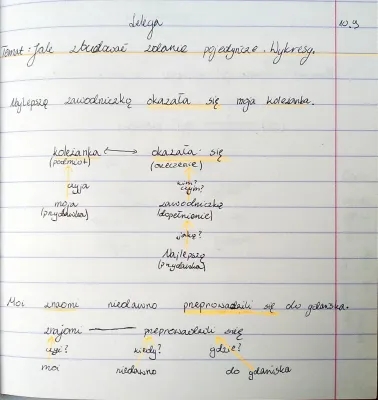 Lekcja 10.9
Temat: Jak zbudować zdanie pojedyncze. Wykresy.
Najlepszą zawodniczką okazała się moja koleżanka.
koleżanka okazała się
(podmiot) (orzeczenie)
czyja kim?
czym?
moja zawodniczką
(przydawka) (dopełnienie)
jaką?
Najlepszą
(przydawka)
Moi znajomi niedawno przeprowadzili się do gdańska.
znajomi przeprowadzili się
czyi? kiedy? gdzie?
moi niedawno do gdańska